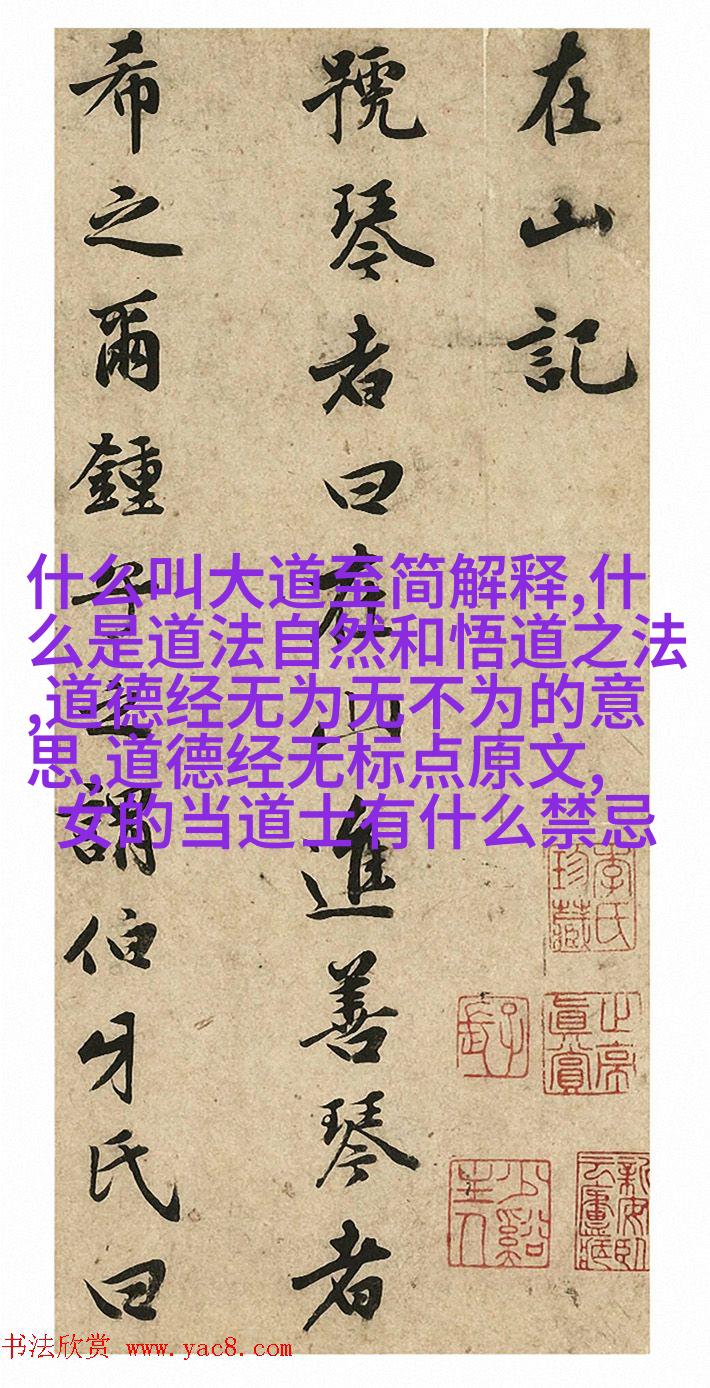 在山記
號琴者曰在山進善琴者
希之爾鍾子謂伯牙氏曰
什么叫大道至简解释,什
么是道法自然和悟道之法
,道德经无为无不为的意
思,道德经无标点原文,
女的当道士有什么禁忌
李氏珍藏
少谿主人
书法欣赏 www.yac8.com